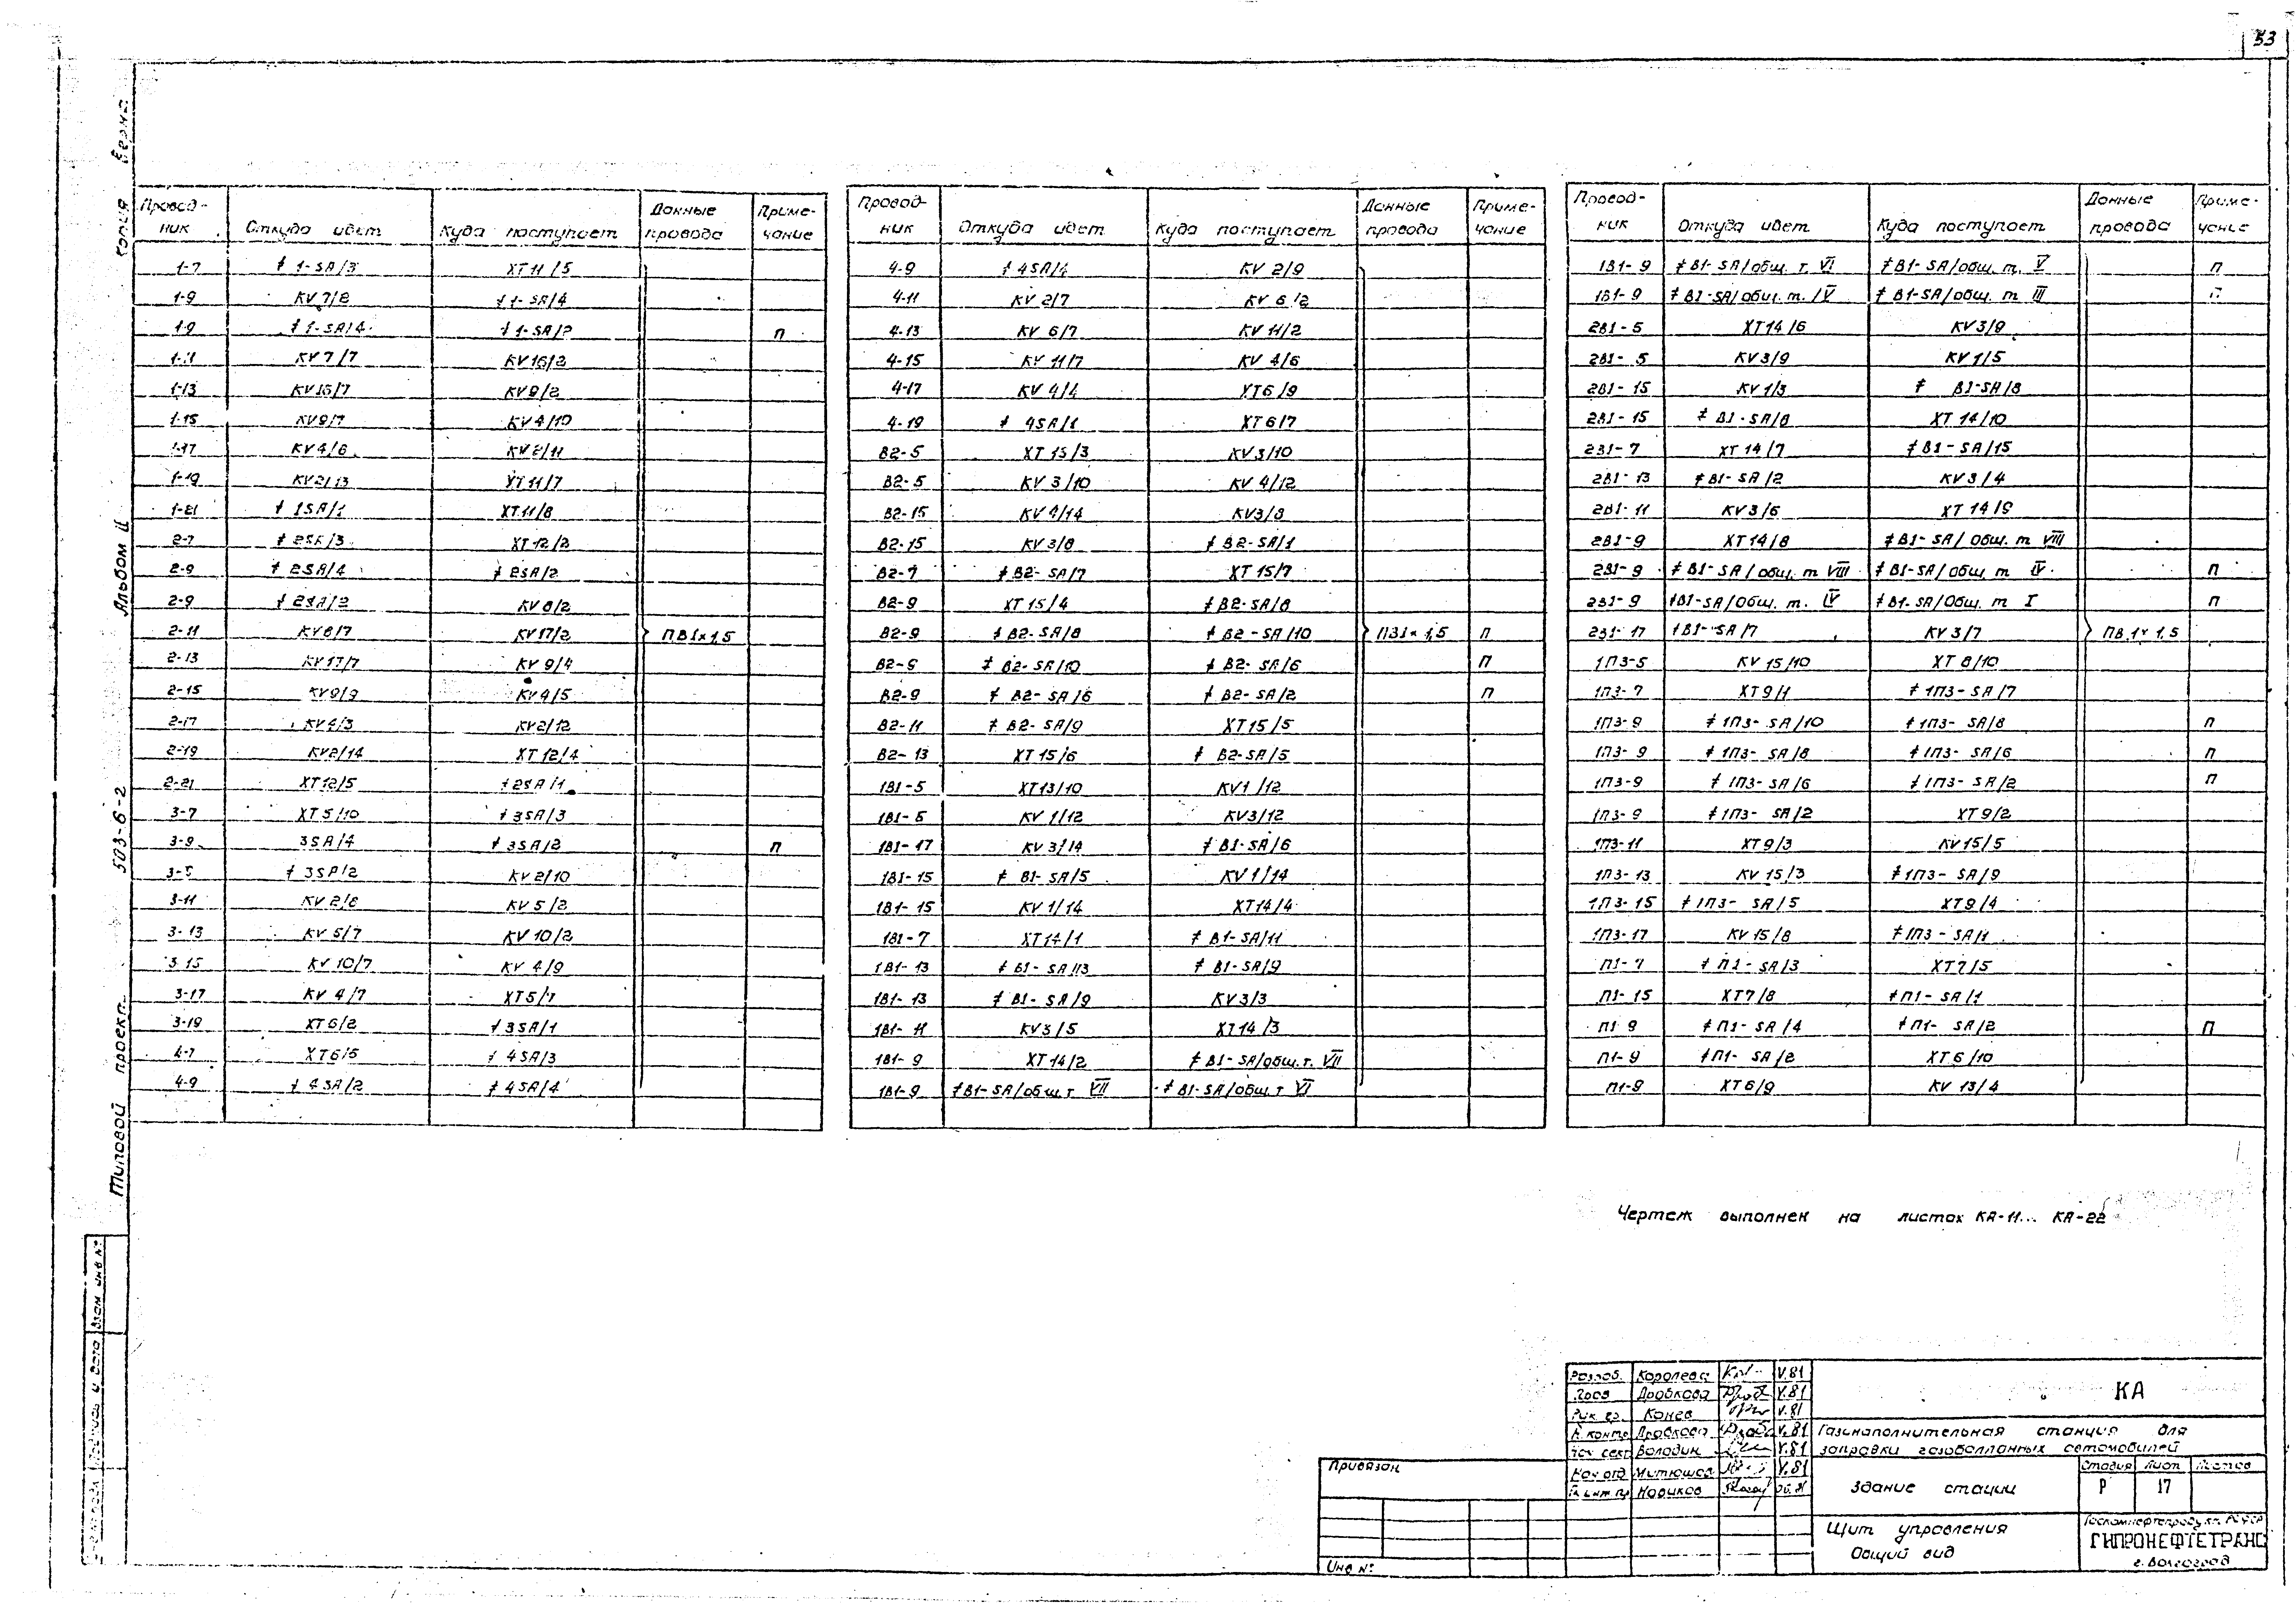 53
Копия
Альбом II
503-6-2
Типовой проект
Провод-ник Откуда идет Куда поступает Данные провода Приме-чание
1-7 ≠ 1-SA/3 XT11/5
1-9 KV7/8 ≠ 1-SA/4
1-9 ≠ 1-SA/4 ≠ 1-SA/2 П
1-11 KV7/7 KV16/2
1-13 KV16/7 KV9/2
1-15 KV9/7 KV4/10
1-17 KV4/8 KV2/11
1-19 KV2/13 XT11/7
1-21 ≠ 1SA/1 XT11/8
2-7 ≠ 2SA/3 XT12/2
2-9 ≠ 2SA/4 ≠ 2SA/2
2-9 ≠ 2SA/2 KV8/2
2-11 KV8/7 KV17/2 ПВ1×1,5
2-13 KV17/7 KV9/4
2-15 KV9/9 KV4/5
2-17 KV4/3 KV2/12
2-19 KV2/14 XT12/4
2-21 XT12/5 ≠ 2SA/1
3-7 XT5/10 ≠ 3SA/3
3-9 3SA/4 ≠ 3SA/2 П
≠ 3SA/2 KV2/10
3-11 KV2/8 KV5/2
3-13 KV5/7 KV10/2
3-15 KV10/7 KV4/9
3-17 KV4/7 XT5/7
3-19 XT6/2 ≠ 3SA/1
4-7 XT6/5 ≠ 4SA/3
4-9 ≠ 4SA/2 ≠ 4SA/4
Провод-ник Откуда идет Куда поступает Данные провода Приме-чание
4-9 ≠ 4SA/4 KV2/9
4-11 KV2/7 KV6/2
4-13 KV6/7 KV11/2
4-15 KV11/7 KV4/6
4-17 KV4/4 XT6/9
4-19 ≠ 4SA/1 XT6/7
В2-5 XT15/3 KV3/10
В2-5 KV3/10 KV4/12
В2-15 KV4/14 KV3/8
В2-15 KV3/8 ≠ В2-SA/1
В2-7 ≠ В2-SA/7 XT15/7
В2-9 XT15/4 ≠ В2-SA/8
В2-9 ≠ В2-SA/8 ≠ В2-SA/10 ПВ1×1,5 П
В2-9 ≠ В2-SA/10 ≠ В2-SA/6 П
В2-9 ≠ В2-SA/6 ≠ В2-SA/2 П
В2-11 ≠ В2-SA/9 XT15/5
В2-13 XT15/6 ≠ В2-SA/5
1В1-5 XT13/10 KV1/12
1В1-5 KV1/12 KV3/12
1В1-17 KV3/14 ≠ В1-SA/6
1В1-15 ≠ В1-SA/5 KV1/14
1В1-15 KV1/14 XT14/4
1В1-7 XT14/1 ≠ В1-SA/11
1В1-13 ≠ В1-SA/13 ≠ В1-SA/9
1В1-13 ≠ В1-SA/9 KV3/3
1В1-11 KV3/5 XT14/3
1В1-9 XT14/2 ≠ В1-SA/общ.т. VII
1В1-9 ≠ В1-SA/общ.т VII ≠ В1-SA/общ.т VI
Провод-ник Откуда идет Куда поступает Данные провода Приме-чание
1В1-9 ≠ В1-SA/общ. т. VI ≠ В1-SA/общ. т. V П
1В1-9 ≠ В1-SA/общ. т. IV ≠ В1-SA/общ. т III П
2В1-5 XT14/6 KV3/9
2В1-5 KV3/9 KV1/5
2В1-15 KV1/3 ≠ В1-SA/8
2В1-15 ≠ В1-SA/8 XT14/10
2В1-7 XT14/7 ≠ В1-SA/15
2В1-13 ≠ В1-SA/2 KV3/4
2В1-11 KV3/6 XT14/9
2В1-9 XT14/8 ≠ В1-SA/общ. т VIII
2В1-9 ≠ В1-SA/общ. т VIII ≠ В1-SA/общ. т IV П
2В1-9 ≠ В1-SA/общ. т. IV ≠ В1-SA/общ. т I П
2В1-17 ≠ В1-SA/7 KV3/7 ПВ.1×1,5
1П3-5 KV15/10 XT8/10
1П3-7 XT9/1 ≠ 1П3-SA/7
1П3-9 ≠ 1П3-SA/10 ≠ 1П3-SA/8 П
1П3-9 ≠ 1П3-SA/8 ≠ 1П3-SA/6 П
1П3-9 ≠ 1П3-SA/6 ≠ 1П3-SA/2 П
1П3-9 ≠ 1П3-SA/2 XT9/2
1П3-11 XT9/3 KV15/5
1П3-13 KV15/3 ≠ 1П3-SA/9
1П3-15 ≠ 1П3-SA/5 XT9/4
1П3-17 KV15/8 ≠ 1П3-SA/1
П1-7 ≠ П1-SA/3 XT7/5
П1-15 XT7/8 ≠ П1-SA/1
П1 9 ≠ П1-SA/4 ≠ П1-SA/2 П
П1-9 ≠ П1-SA/2 XT6/10
П1-9 XT6/9 KV13/4
Чертеж выполнен на листах КА-11... КА-22
Взам. инв. №
Подпись и дата
Разраб. Королева V.81
Пров Дробкова V.81
Рук. гр. Конев V.81
Н. контр Дробкова V.81
Нач сект Володин V.81
Нач отд Митюшов V.81
Гл. инж. пр Новиков
КА
Газонаполнительная станция для
заправки газобаллонных автомобилей
Здание стации
Стадия Лист Листов
Р 17
Щит управления
Общий вид
Госкомнефтепродукт РСФСР
ГИПРОНЕФТЕТРАНС
г. Волгоград
Привязан
Инв №